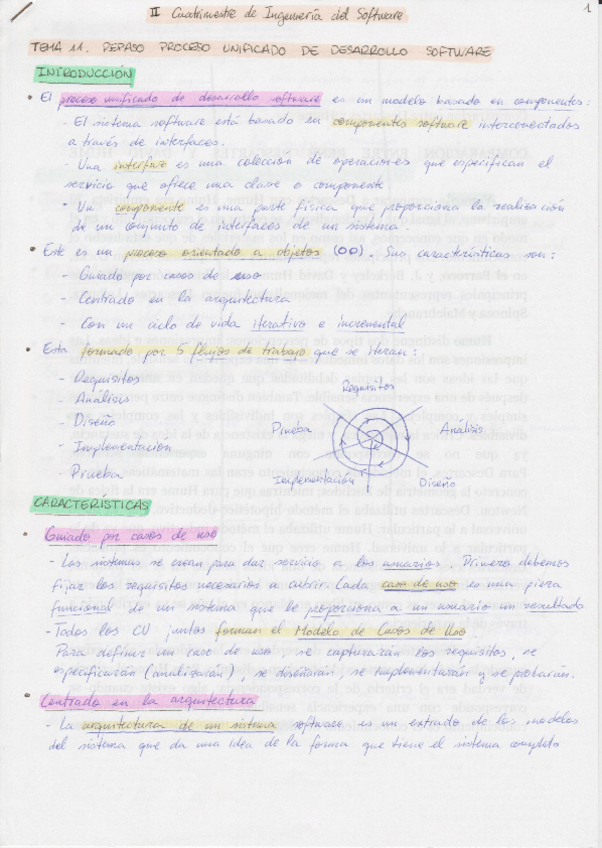 1
II Cuatrimestre de Ingeniería del Software
TEMA 11. REPASO PROCESO UNIFICADO DE DESARROLLO SOFTWARE
INTRODUCCIÓN
• El proceso unificado de desarrollo software es un modelo basado en componentes:
- El sistema software está basado en componentes software interconectados
a través de interfaces.
- Una interface es una colección de operaciones que especifican el
servicio que ofrece una clase o componente.
- Un componente es una parte física que proporciona la realización
de un conjunto de interfaces de un sistema.
• Este es un proceso orientado a objetos (OO). Sus características son:
- Guiado por casos de uso
- Centrado en la arquitectura
- Con un ciclo de vida iterativo e incremental
• Esta formado por 5 flujos de trabajo que se iteran:
- Requisitos
- Análisis
- Diseño
- Implementación
- Prueba
Requisitos
Prueba
Análisis
Implementación
Diseño
CARACTERÍSTICAS
• Guiado por casos de uso
- Los sistemas se crean para dar servicio a los usuarios. Primero debemos
fijar los requisitos necesarios a cubrir. Cada caso de uso es una pieza
funcional de un sistema que le proporciona a un usuario un resultado
- Todos los CU juntos forman el Modelo de Casos de Uso
Para definir un caso de uso se capturarán los requisitos, se
especificarán (analizarán), se diseñarán, se implementarán y se probarán.
• Centrado en la arquitectura
- La arquitectura de un sistema software es un extracto de los modelos
del sistema que da una idea de la forma que tiene el sistema completo